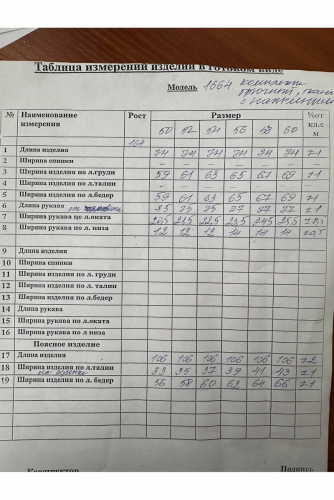 Таблица измерений изделий в готовом виде
Модель 1664 комплект
брючный, ткань
№ Наименование измерения Рост Размер %от кл.с м
50 52 54 56 58 60
164
1 Длина изделия 74 74 74 74 74 74 ±1
2 Ширина спинки – – – – – –
3 Ширина изделия по л.груди 59 61 63 65 67 69 ±1
4 Ширина изделия по л.талии – – – – – –
5 Ширина изделия по л.бедер 59 61 63 65 67 69 ±1
6 Длина рукава от 75 77 77 77 ±1
7 Ширина рукава це л.оката 20,5 21,5 22,5 23,5 24,5 25,5
8 Ширина рукава по л. низа 12 12 12 14 14 14 ±0,5
9 Длина изделия
10 Ширина спинки
11 Ширина изделия по л. груди
12 Ширина изделия по л. талии
13 Ширина изделия по л.бедер
14 Длина рукава
15 Ширина рукава по л.оката
16 Ширина рукава по л низа
Поясное изделие
17 Длина изделия 106 106 106 106 106 106 ±2
18 Ширина изделия по л.талии 33 35 37 39 41 43 ±1
на резинке
19 Ширина изделия по л. бедер 56 58 60 62 64 66 ±1
Конструктор Подпись